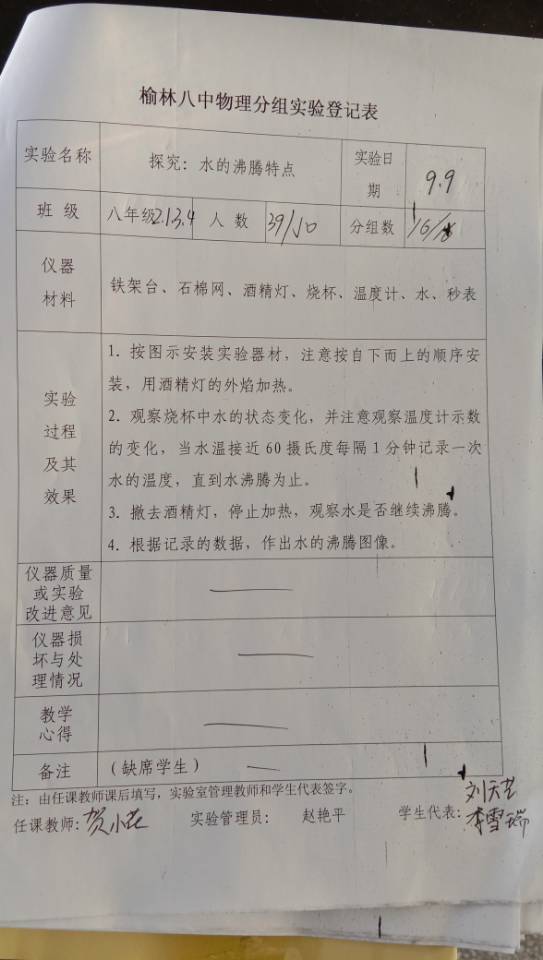 榆林八中物理分组实验登记表
实验名称 探究：水的沸腾特点 实验日期 9.9
班 级 八年级2.1.3.4 人 数 39/50 分组数
仪器
材料
铁架台、石棉网、酒精灯、烧杯、温度计、水、秒表
实验
过程
及其
效果
1．按图示安装实验器材，注意按自下而上的顺序安
装，用酒精灯的外焰加热。
2．观察烧杯中水的状态变化，并注意观察温度计示数
的变化，当水温接近 60 摄氏度每隔 1 分钟记录一次
水的温度，直到水沸腾为止。
3．撤去酒精灯，停止加热，观察水是否继续沸腾。
4．根据记录的数据，作出水的沸腾图像。
仪器质量
或实验
改进意见
仪器损
坏与处
理情况
教学
心得
备注 （缺席学生）
注：由任课教师课后填写，实验室管理教师和学生代表签字。
任课教师：贺小花 实验管理员： 赵艳平 学生代表：刘天艺
李雪瑞